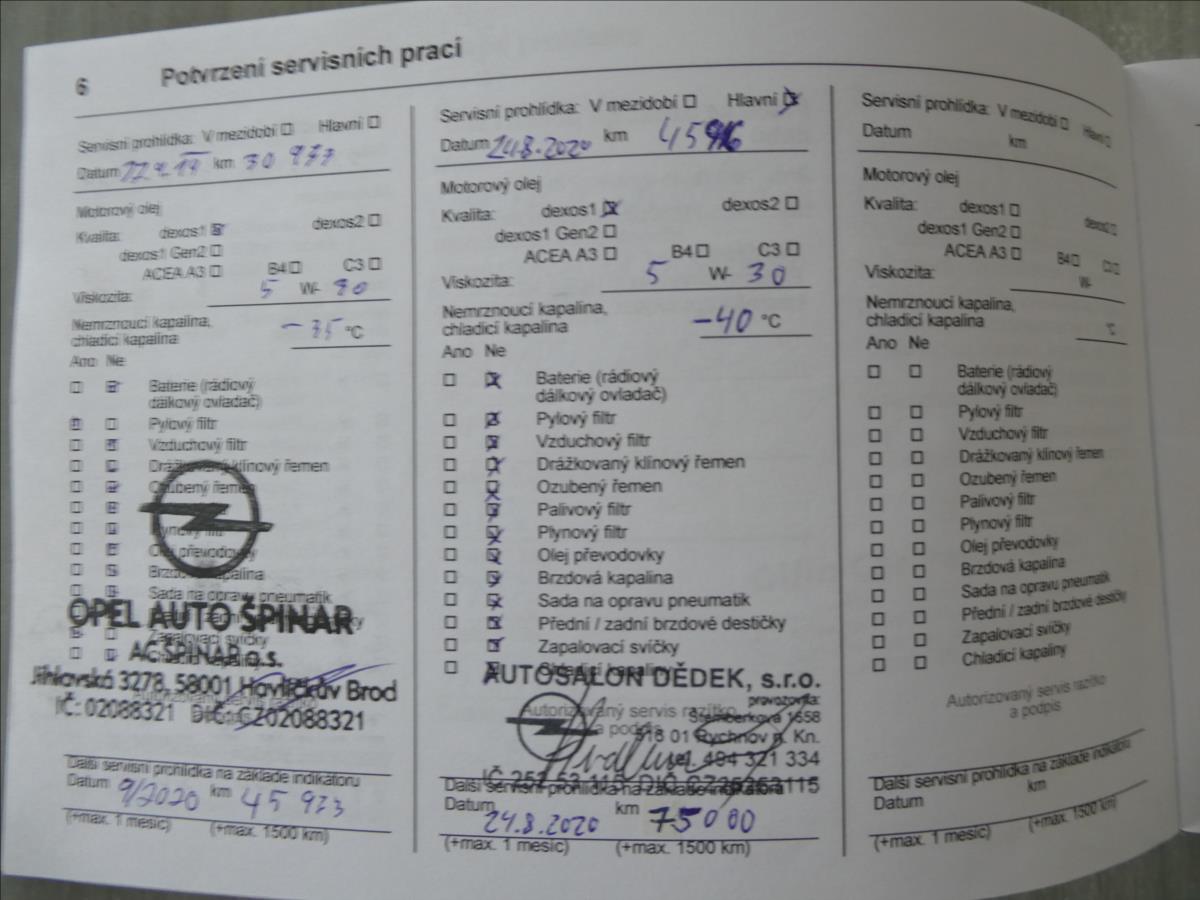 6 Potvrzení servisních prací
Servisní prohlídka: V mezidobí Hlavní
Datum km 30 973
Motorový olej
Kvalita: dexos1 dexos2
dexos1 Gen2
ACEA A3 B4 C3
Viskozita: 5 W- 30
Nemrznoucí kapalina,
chladicí kapalina -35 °C
Ano Ne
Baterie (rádiový
dálkový ovladač)
Pylový filtr
Vzduchový filtr
Drážkovaný klínový řemen
Ozubený řemen
Plynový filtr
Olej převodovky
Brzdová kapalina
Sada na opravu pneumatik
Zapalovací svíčky
OPEL AUTO ŠPINAR
AC ŠPINAR a.s.
Jihlavská 3278, 58001 Havlíčkův Brod
IČ: 02088321 DIČ: CZ02088321
Další servisní prohlídka na základě indikátoru
Datum 9/2020 km 45 973
(+max. 1 měsíc) (+max. 1500 km)
Servisní prohlídka: V mezidobí Hlavní
Datum 24.8.2020 km
Motorový olej
Kvalita: dexos1 dexos2
dexos1 Gen2
ACEA A3 B4 C3
Viskozita: 5 W- 30
Nemrznoucí kapalina,
chladicí kapalina -40 °C
Ano Ne
Baterie (rádiový
dálkový ovladač)
Pylový filtr
Vzduchový filtr
Drážkovaný klínový řemen
Ozubený řemen
Palivový filtr
Plynový filtr
Olej převodovky
Brzdová kapalina
Sada na opravu pneumatik
Přední / zadní brzdové destičky
Zapalovací svíčky
Chladicí kapaliny
AUTOSALON DĚDEK, s.r.o.
provozovna:
Autorizovaný servis razítko
Štemberkova 1658
a podpis
518 01 Rychnov n. Kn.
tel. 494 321 334
IČ 252 53 115, DIČ CZ25253115
Další servisní prohlídka na základě indikátoru
Datum 24.8.2020 km 75000
(+max. 1 měsíc) (+max. 1500 km)
Servisní prohlídka: V mezidobí Hlavní
Datum km
Motorový olej
Kvalita: dexos1 dexos2
dexos1 Gen2
ACEA A3 B4 C3
Viskozita: W-
Nemrznoucí kapalina,
chladicí kapalina °C
Ano Ne
Baterie (rádiový
dálkový ovladač)
Pylový filtr
Vzduchový filtr
Drážkovaný klínový řemen
Ozubený řemen
Palivový filtr
Plynový filtr
Olej převodovky
Brzdová kapalina
Sada na opravu pneumatik
Přední / zadní brzdové destičky
Zapalovací svíčky
Chladicí kapaliny
Autorizovaný servis razítko
a podpis
Další servisní prohlídka na základě indikátoru
Datum km
(+max. 1 měsíc) (+max. 1500 km)